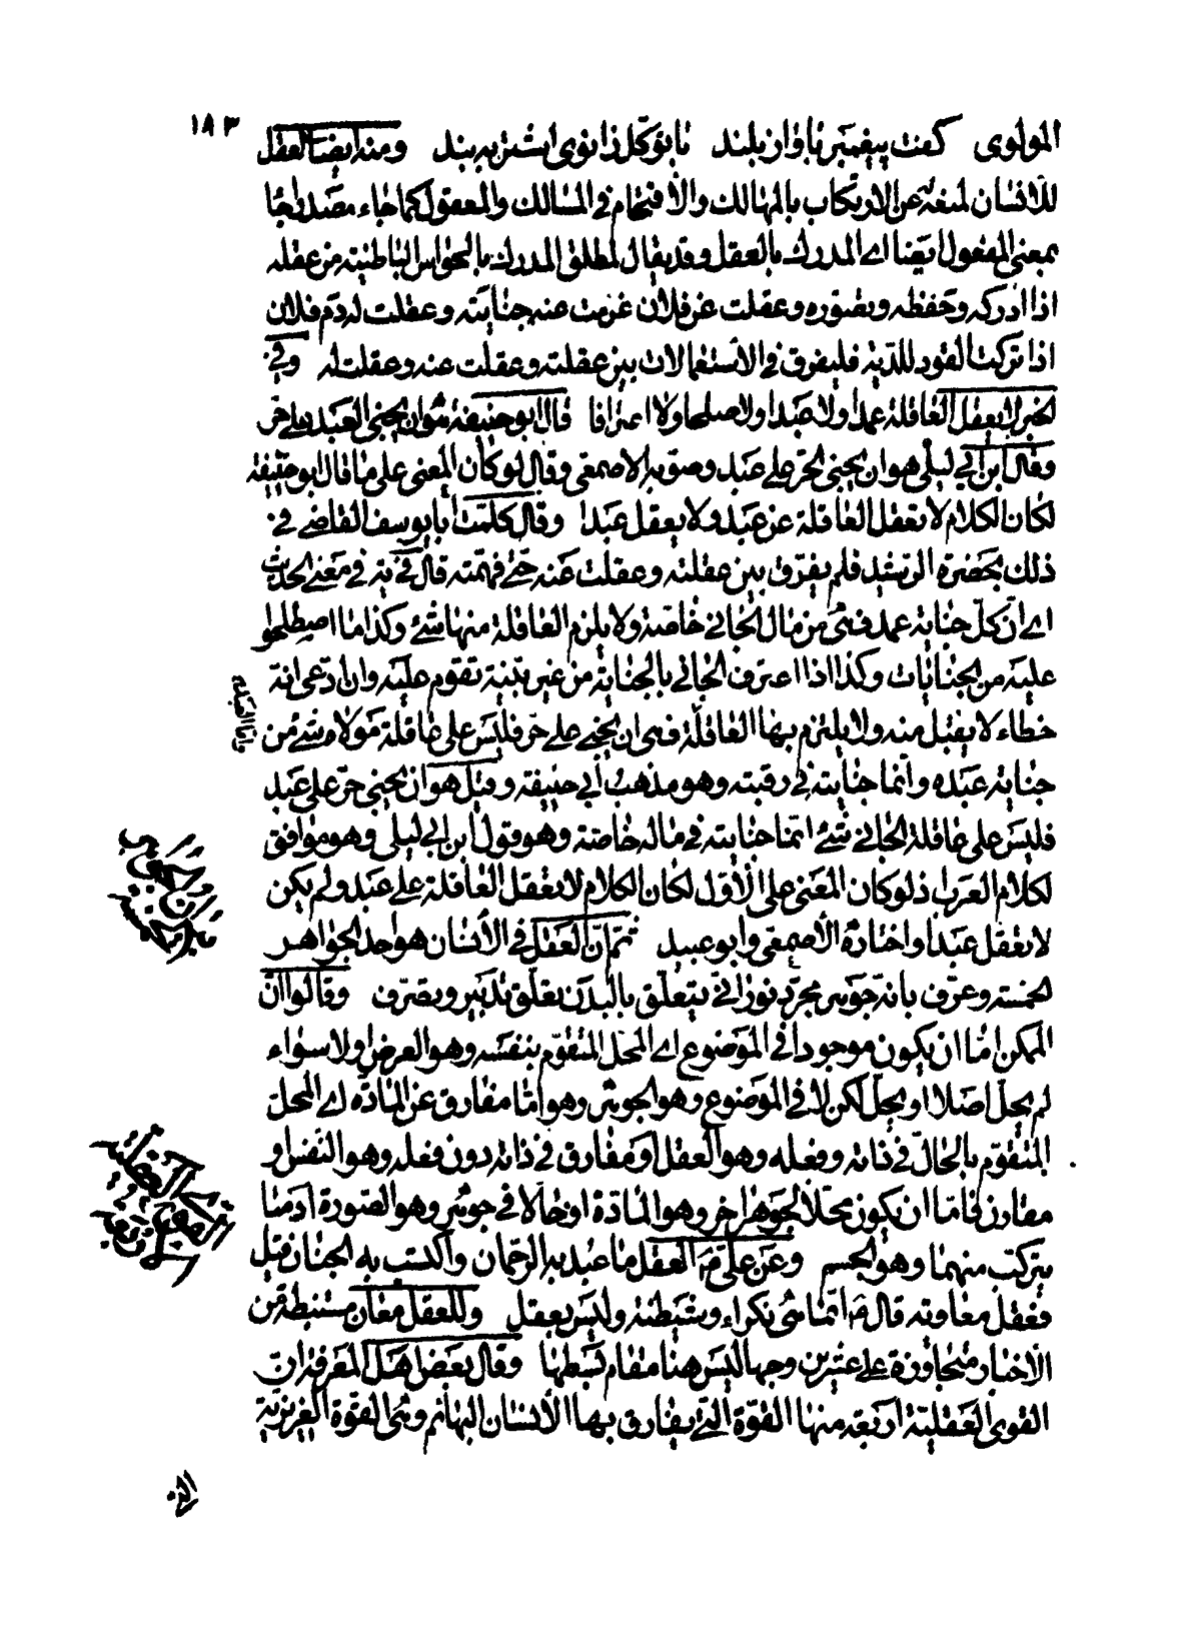 ١٨٣
المولوى گفت پيغمبر بآواز بلند با توكل زانوى اشتر ببند ومنه ايضا العقل
للانسان لمنعه عن الارتكاب بالمهالك والأقتحام فى المسالك والمعقول كما جاء مصدرا جا
بمعنى المفعول ايضا اى المدرك بالعقل وقد يقال لمطلق المدرك بالحواس الباطنية من عقله
اذا ادركه وحفظه وتصوره وعقلت عن فلان غرمت عنه جنايته وعقلت له دم فلان
اذا تركت القود للدية فليفرق فى الأستعمالات بين عقلته وعقلت عنه وعقلت له وفى
الخبر لا يعقل العاقلة عمدا ولا عبدا ولا صلحا ولا اعترافا قال ابو حنيفة هو ان يجنى العبد على حر
وقال ابن ابى ليلى هو ان يجنى الحر على عبد وصوبه الاصمعى وقال لو كان المعنى على ما قال ابو حنيفة
لكان الكلام لا تعقل العاقلة عن عبد ولا يعقل عبدا وقال كلمت أبا يوسف القاضى فى
ذلك بحضرة الرشيد فلم يفرق بين عقلته وعقلت عنه حتى فهمته قال فى يه فى معنى الحديث
اى ان كل جناية عمد فهى من مال الجانى خاصة ولا يلزم العاقلة منها شئ وكذا ما اصطلحوا
عليه من الجنايات وكذا اذا اعترف الجانى بالجناية من غير بينة تقوم عليه وان ادعى انه
خطاء لا يقبل منه ولا يلتزم بها العاقلة فهى ان يجنى على حر فليس على عاقلة مولاه شئ من
جناية عبده وانما جنايته فى رقبته وهو مذهب أبى حنيفة وقيل هو ان يجنى حر على عبد
فليس على عاقلة الجانى شئ انما جنايته فى ماله خاصة وهو قول ابن ابى ليلى وهو موافق
لكلام العرب اذ لو كان المعنى على الأول لكان الكلام لا تعقل العاقلة على عبد ولم يكن
لا تعقل عبدا واختاره الأصمعى وابو عبيد ثم ان العقل فى الأنسان هو احد الجواهر
الخمسة وعرف بانه جوهر مجرد نورانى يتعلق بالبدن تعلق تدبير وتصرف وقالوا ان
الممكن اما ان يكون موجودا فى الموضوع اى المحل المتقوم بنفسه وهو العرض اولا سواء
لم يحل اصلا او يحل لكن لا فى الموضوع وهو الجوهر وهو اما مفارق عن المادة اى المحل
المتقوم بالحال فى ذاته وفعله وهو العقل او مفارق فى ذاته دون فعله وهو النفس او
مقارن فاما ان يكون محلا لجوهر اخر وهو المادة او حالا فى جوهر وهو الصورة او مما
يتركب منهما وهو الجسم وعن على ع العقل ما عبد به الرحمان واكتسب به الجنان قيل
فعقل معاوية قال ع انما هى نكراء وشيطنة وليس بعقل وللعقل معان مستنبطة من
الاخبار متجاوزة على عشرين وجها ليس هنا مقام بسطها وقال بعض اهل المعرفة ان
القوى العقلية اربعة منها القوة التى يفارق بها الأنسان البهائم وهى القوة الغريزية